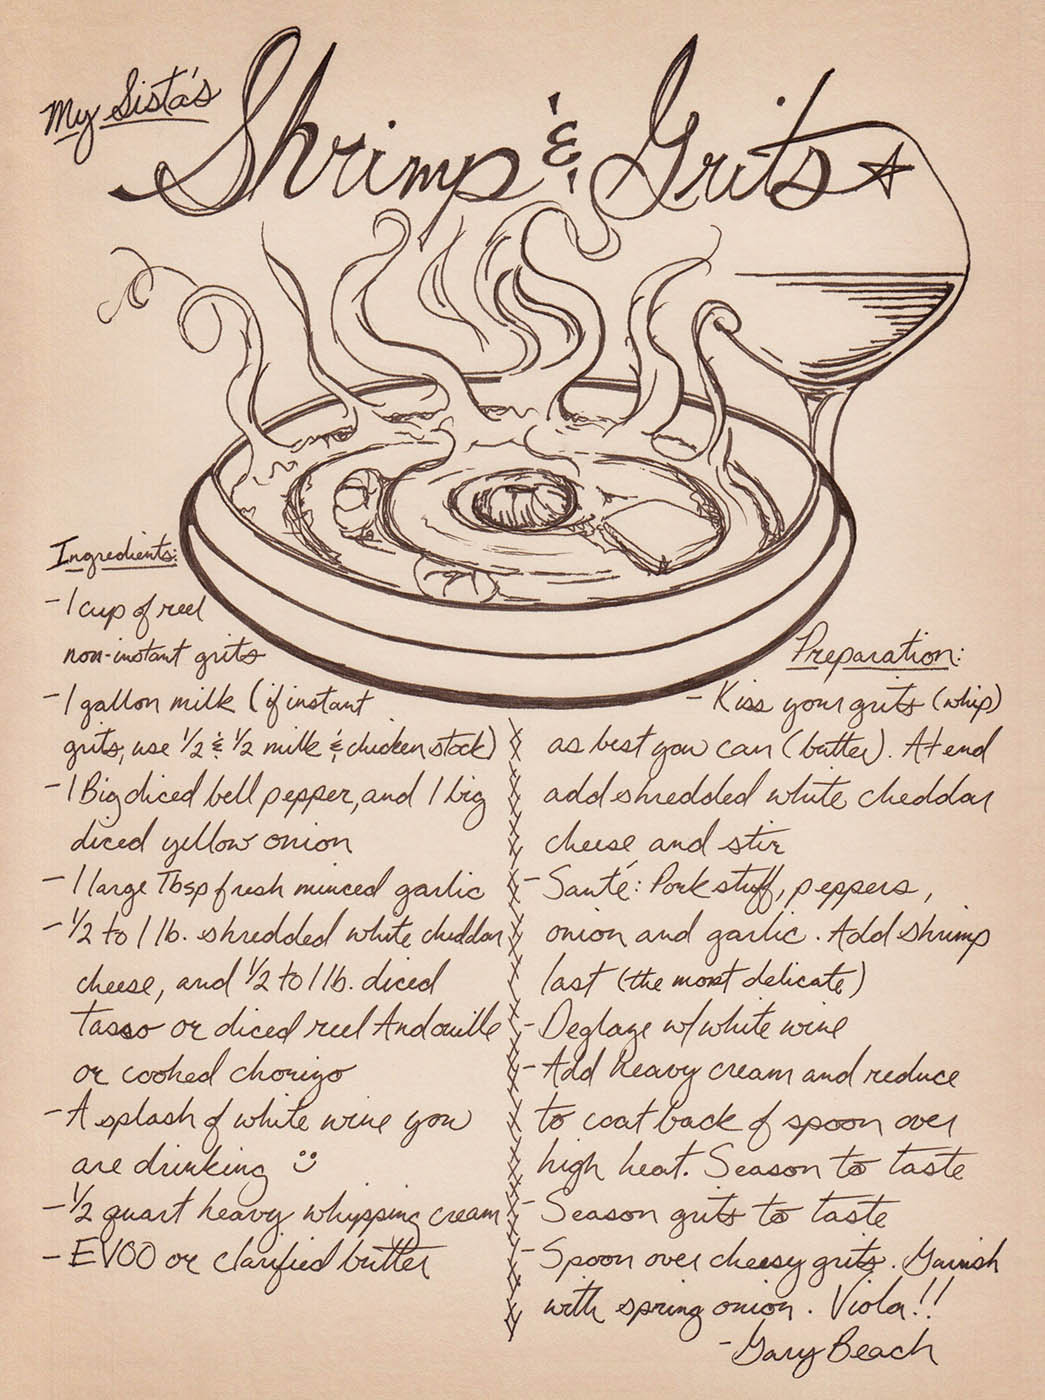 My Sista's
Shrimp & Grits
Ingredients:
- 1 cup of reel
non-instant grits
- 1 gallon milk (if instant
grits, use 1/2 & 1/2 milk & chicken stock)
- 1 Big diced bell pepper, and 1 big
diced yellow onion
- 1 large Tbsp fresh minced garlic
- 1/2 to 1 lb. shredded white cheddar
cheese, and 1/2 to 1 lb. diced
tasso or diced reel Andouille
or cooked chorizo
- A splash of white wine you
are drinking ☺
- 1/2 quart heavy whipping cream
- EVOO or clarified butter
Preparation:
- Kiss your grits (whip)
as best you can (butter). At end
add shredded white cheddar
cheese and stir
- Sauté: Pork stuff, peppers,
onion and garlic. Add shrimp
last (the most delicate)
- Deglaze w/ white wine
- Add heavy cream and reduce
to coat back of spoon over
high heat. Season to taste
- Season grits to taste
- Spoon over cheesy grits. Garnish
with spring onion. Viola!!
- Gary Beach